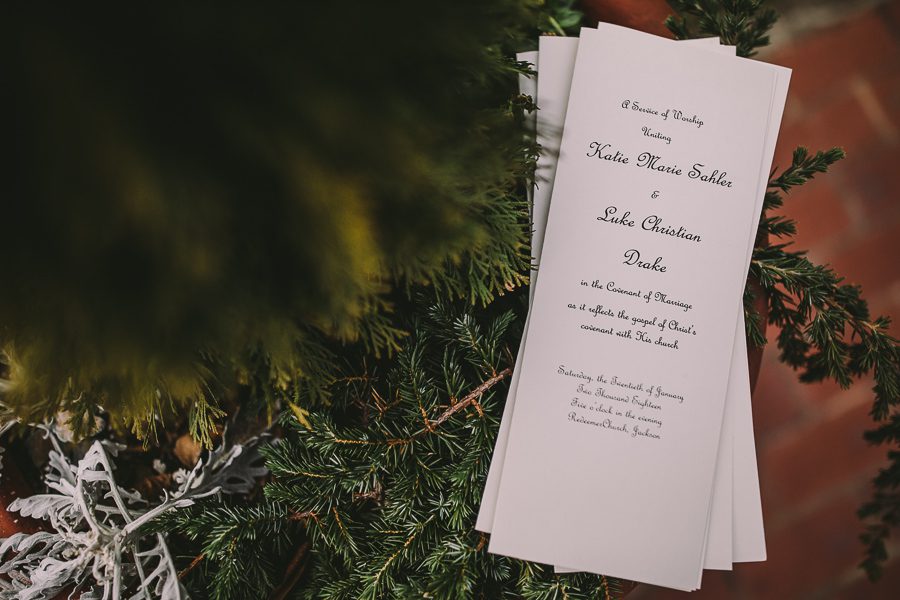 A Service of Worship
Uniting
Katie Marie Sahler
&
Luke Christian
Drake
in the Covenant of Marriage
as it reflects the gospel of Christ's
covenant with His church
Saturday, the Twentieth of January
Two Thousand Eighteen
Five o clock in the evening
RedeemerChurch, Jackson